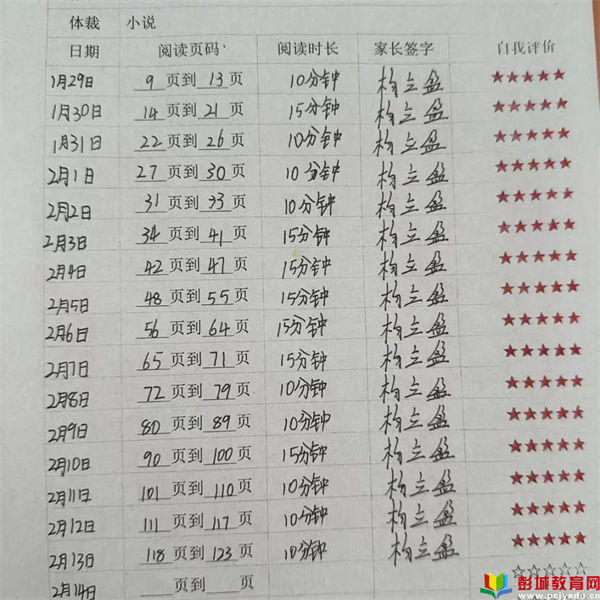 体裁 小说
日期 阅读页码 阅读时长 家长签字 自我评价
1月29日 9页到13页 10分钟 杨立盈 ★★★★★
1月30日 14页到21页 15分钟 杨立盈 ★★★★★
1月31日 22页到26页 10分钟 杨立盈 ★★★★★
2月1日 27页到30页 10分钟 杨立盈 ★★★★★
2月2日 31页到33页 10分钟 杨立盈 ★★★★★
2月3日 34页到41页 15分钟 杨立盈 ★★★★★
2月4日 42页到47页 15分钟 杨立盈 ★★★★★
2月5日 48页到55页 15分钟 杨立盈 ★★★★★
2月6日 56页到64页 15分钟 杨立盈 ★★★★★
2月7日 65页到71页 15分钟 杨立盈 ★★★★★
2月8日 72页到79页 10分钟 杨立盈 ★★★★★
2月9日 80页到89页 10分钟 杨立盈 ★★★★★
2月10日 90页到100页 15分钟 杨立盈 ★★★★★
2月11日 101页到110页 10分钟 杨立盈 ★★★★★
2月12日 111页到117页 10分钟 杨立盈 ★★★★★
2月13日 118页到123页 10分钟 杨立盈 ★★★★★
2月14日 页到 页 ☆☆☆☆☆
彭城教育网
www.pcjyedu.cn